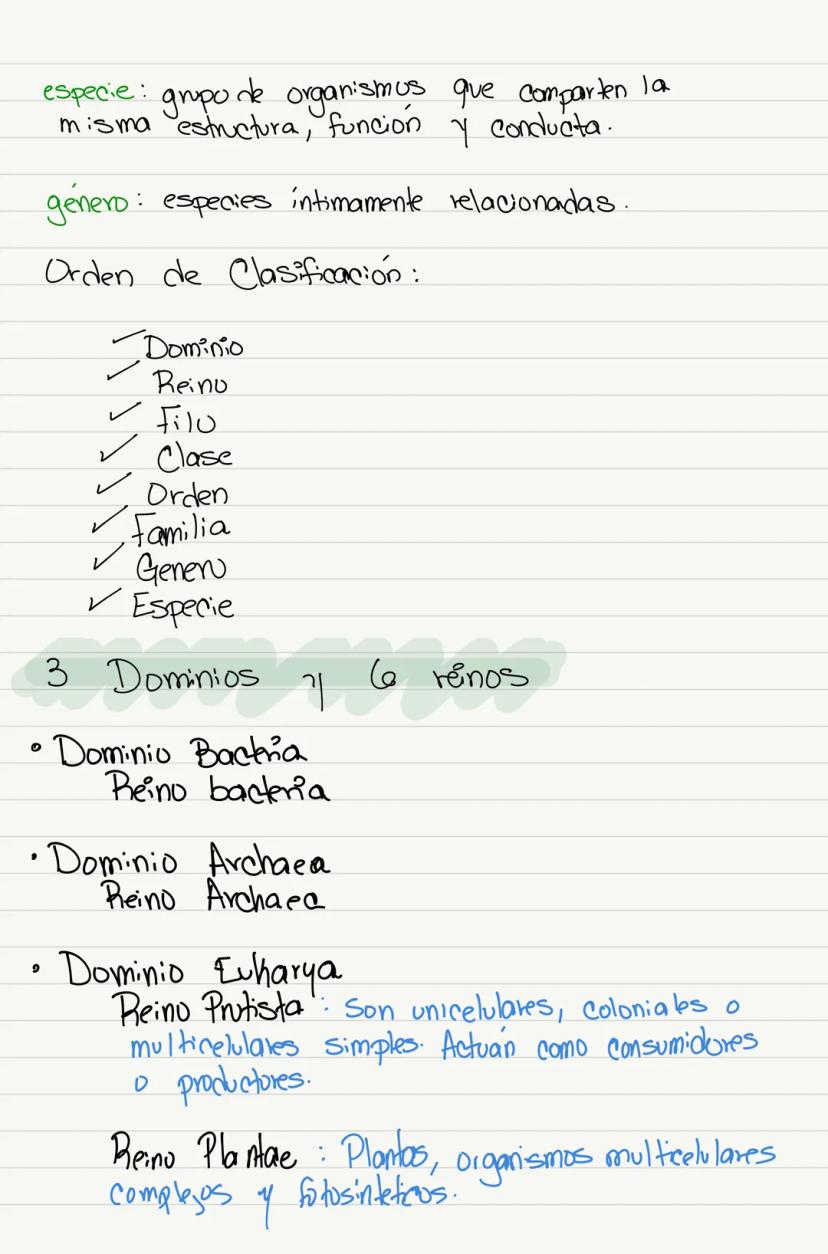 especie: grupo de organismos que comparten la
misma estructura, función y conducta.
género: especies íntimamente relacionadas.
Orden de Clasificación:
Dominio
Reino
Filo
Clase
Orden
Familia
Genero
Especie
3 Dominios y 6 reinos
• Dominio Bacteria
Reino bacteria
• Dominio Archaea
Reino Archaea
• Dominio Eukarya
Reino Protista: Son unicelulares, coloniales o
multicelulares simples. Actúan como consumidores
o productores.
Reino Plantae: Plantas, organismos multicelulares
complejos y fotosintéticos.